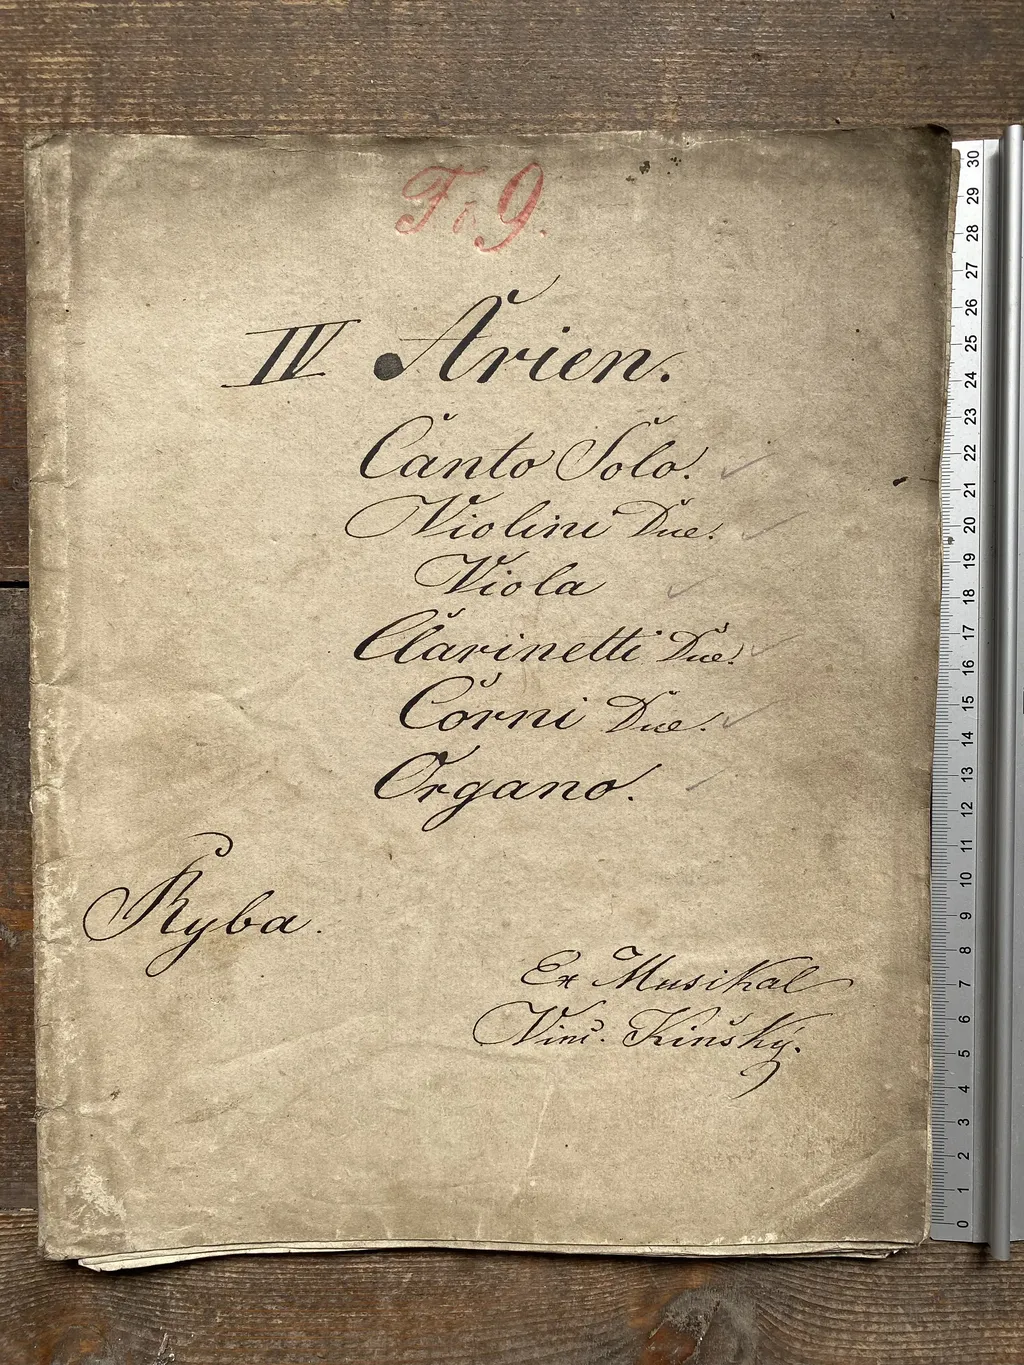 F i 9.
IV Arien.
Canto Solo.
Violini Due.
Viola
Clarinetti Due.
Corni Due.
Organo.
Ryba.
Ex Musikal
Vinc. Kinský.
30
29
28
27
26
25
24
23
22
21
20
19
18
17
16
15
14
13
12
11
10
9
8
7
6
5
4
3
2
1
0